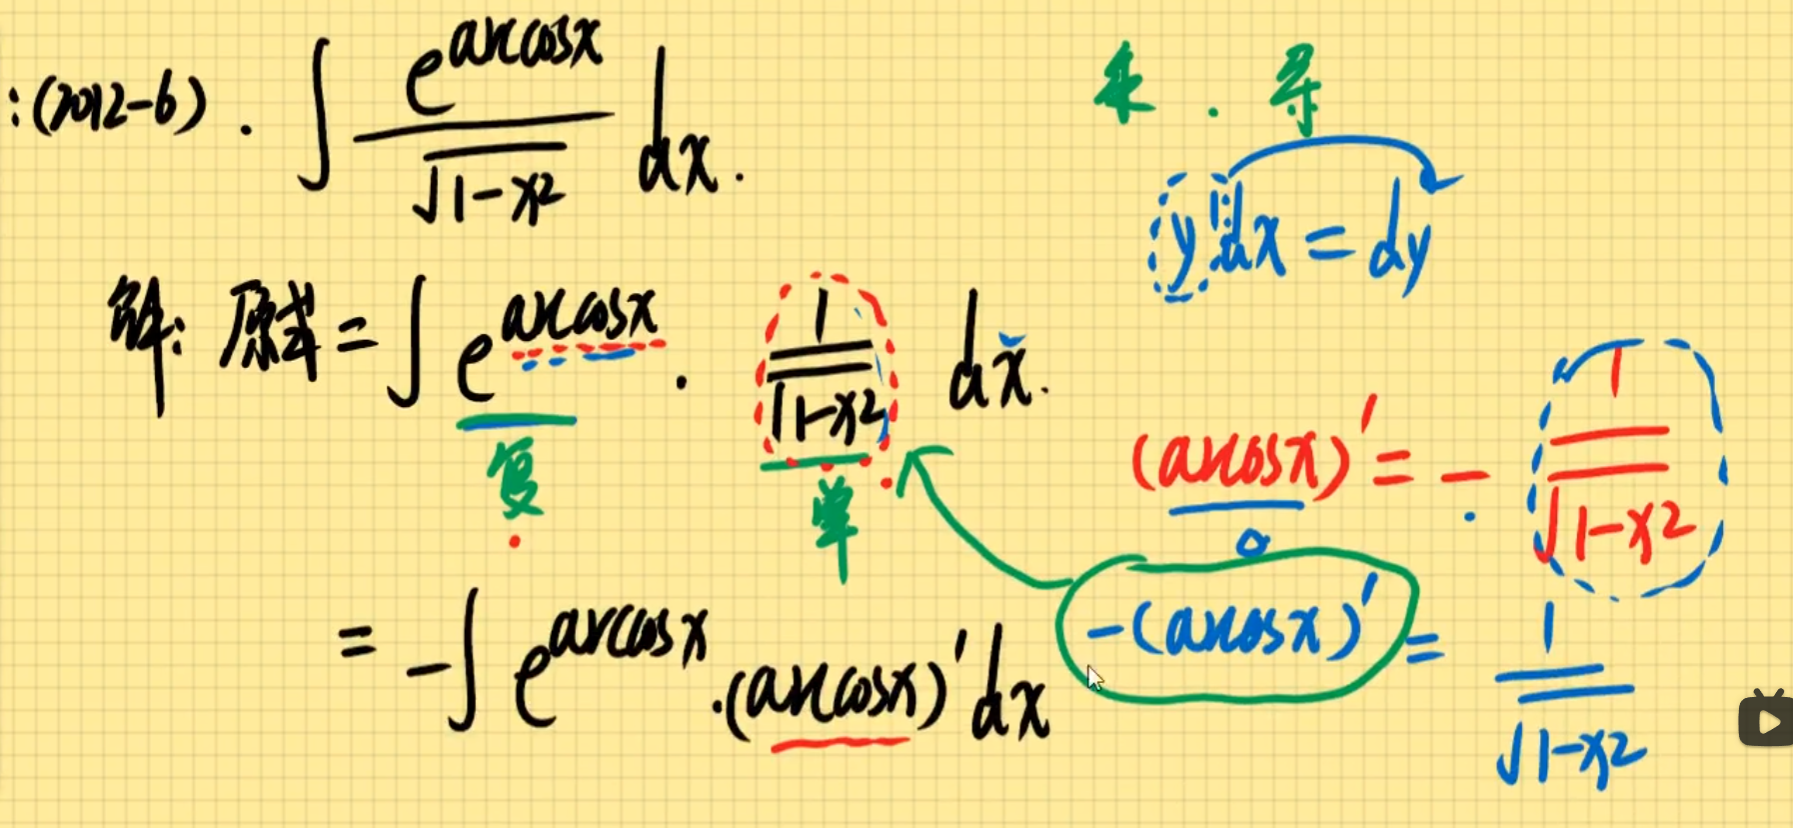 :(2012-6). ∫ e^{arccosx} / √(1-x²) dx.
来 . 导
y'dx = dy
解: 原式 = ∫ e^{arccosx} · 1/√(1-x²) dx.
复
单
(arccosx)' = - 1/√(1-x²)
-(arccosx)' = 1/√(1-x²)
= -∫ e^{arccosx} ·(arccosx)'dx